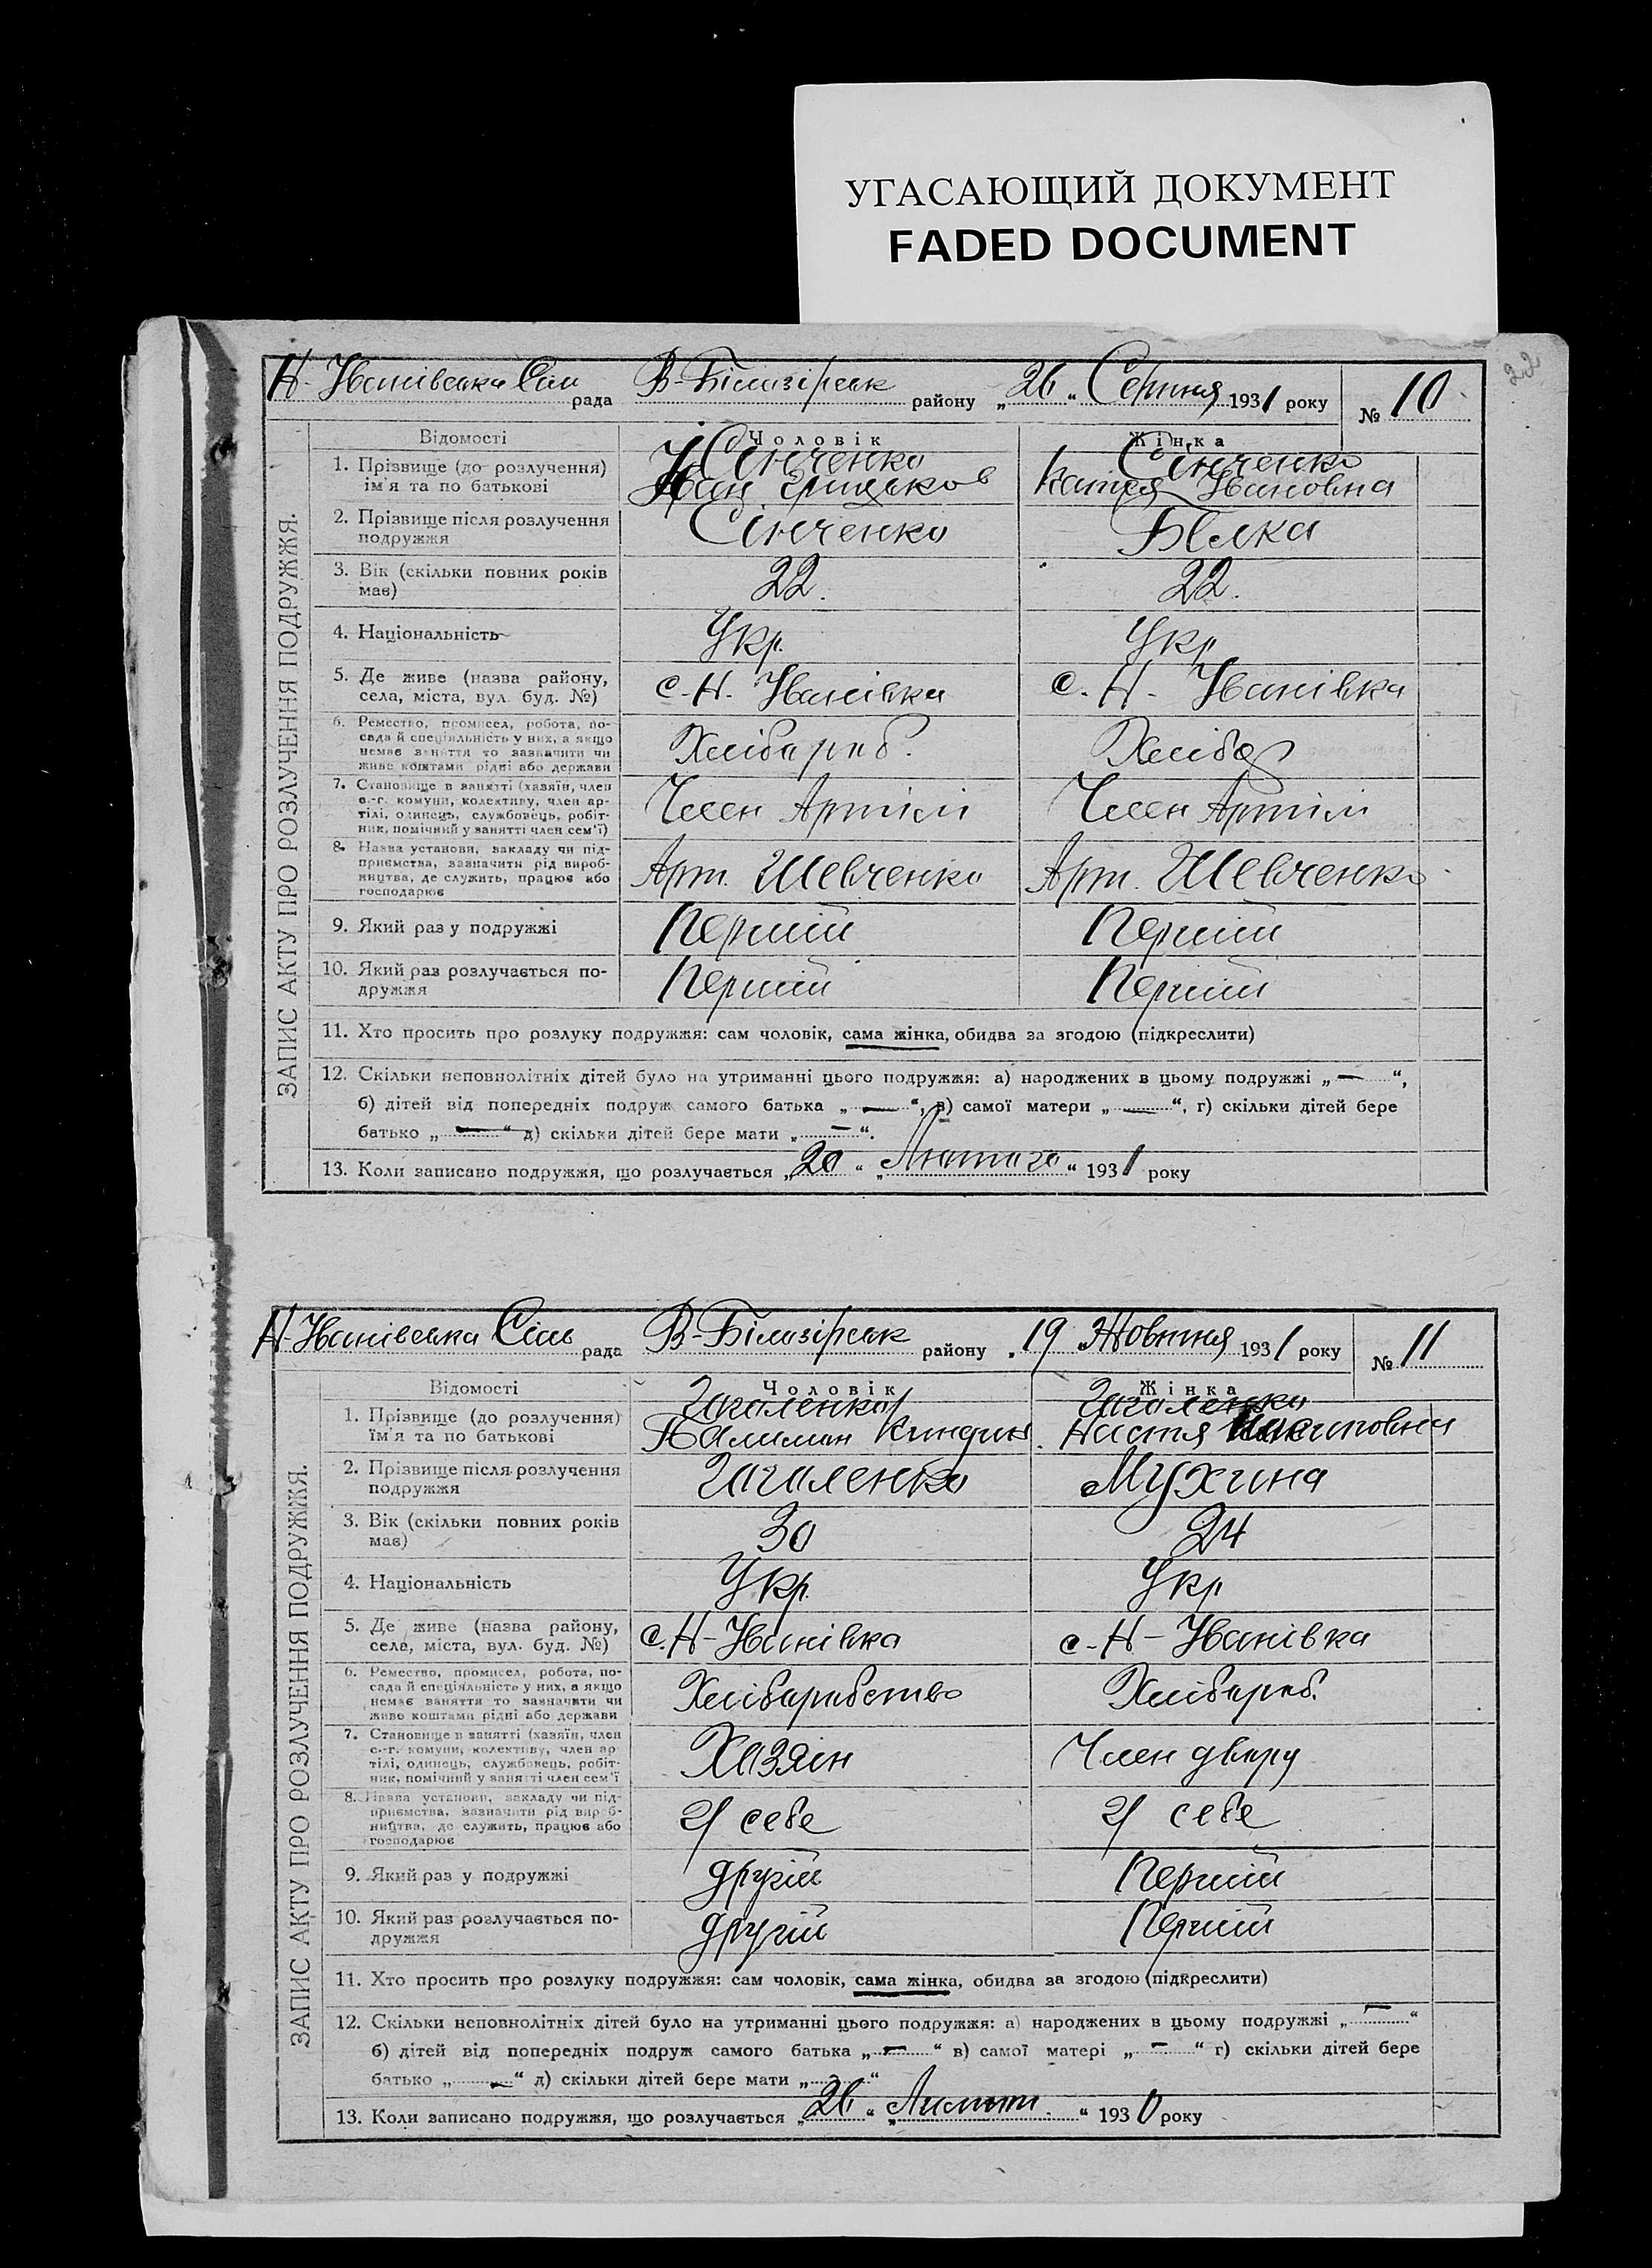 УГАСАЮЩИЙ ДОКУМЕНТ
FADED DOCUMENT
22
Н-Іванівська Сіль рада В-Білозірськ району „26“ Серпня 1931 року № 10
ЗАПИС АКТУ ПРО РОЗЛУЧЕННЯ ПОДРУЖЖЯ.
Відомості Чоловік Жінка
1. Прізвище (до розлучення) Сінченко Сінченко
ім'я та по батькові Іван Грицьков Катря Івановна
2. Прізвище після розлучення
подружжя Сінченко Білка
3. Вік (скільки повних років
має) 22. 22.
4. Національність Укр. Укр
5. Де живе (назва району,
села, міста, вул. буд. №) с-Н. Іванівка с. Н- Іванівка
6. Ремество, промисел, робота, по-
сада й спеціяльність у них, а якщо
немає заняття то зазначити чи
живе коштами рідні або держави Хлібороб. Хлібор
7. Становище в занятті (хазяїн, член
с.-г. комуни, колективу, член ар-
тілі, одинець, службовець, робіт-
ник, помічний у занятті член сем'ї) Член Артілі Член Артілі
8. Назва установи, закладу чи під-
приємства, зазначити рід вироб-
ництва, де служить, працює або
господарює Арт. Шевченко Арт. Шевченко
9. Який раз у подружжі Перший Перший
10. Який раз розлучається по-
дружжя Перший Перший
11. Хто просить про розлуку подружжя: сам чоловік, сама жінка, обидва за згодою (підкреслити)
12. Скільки неповнолітніх дітей було на утриманні цього подружжя: а) народжених в цьому подружжі „—“,
б) дітей від попередніх подруж самого батька „—“, в) самої матери „—“, г) скільки дітей бере
батько „—“ д) скільки дітей бере мати „—“.
13. Коли записано подружжя, що розлучається „20“ „Лютого“ 1931 року
Н-Іванівська Сіль рада В-Білозірськ району „19 Жовтня 1931 року № 11
ЗАПИС АКТУ ПРО РОЗЛУЧЕННЯ ПОДРУЖЖЯ.
Відомості Чоловік Жінка
1. Прізвище (до розлучення) Гаголенко Гаголенко
ім'я та по батькові Настя
2. Прізвище після розлучення
подружжя Гаголенко Мухина
3. Вік (скільки повних років
має) 30 24
4. Національність Укр. Укр
5. Де живе (назва району,
села, міста, вул. буд. №) с.Н-Іванівка с-Н-Іванівка
6. Ремество, промисел, робота, по-
сада й спеціяльність у них, а якщо
немає заняття то зазначити чи
живе коштами рідні або держави Хліборобство Хлібороб.
7. Становище в занятті (хазяїн, член
с.-г. комуни, колективу, член ар-
тілі, одинець, службовець, робіт-
ник, помічний у занятті член сем'ї Хазяїн Член двору
8. Назва установи, закладу чи під-
приємства, зазначити рід вироб-
ництва, де служить, працює або
господарює у себе у себе
9. Який раз у подружжі другій Перший
10. Який раз розлучається по-
дружжя другій Перший
11. Хто просить про розлуку подружжя: сам чоловік, сама жінка, обидва за згодою (підкреслити)
12. Скільки неповнолітніх дітей було на утриманні цього подружжя: а) народжених в цьому подружжі „—“
б) дітей від попередніх подруж самого батька „—“ в) самої матері „—“ г) скільки дітей бере
батько „—“ д) скільки дітей бере мати „—“
13. Коли записано подружжя, що розлучається „26“ 1930 року